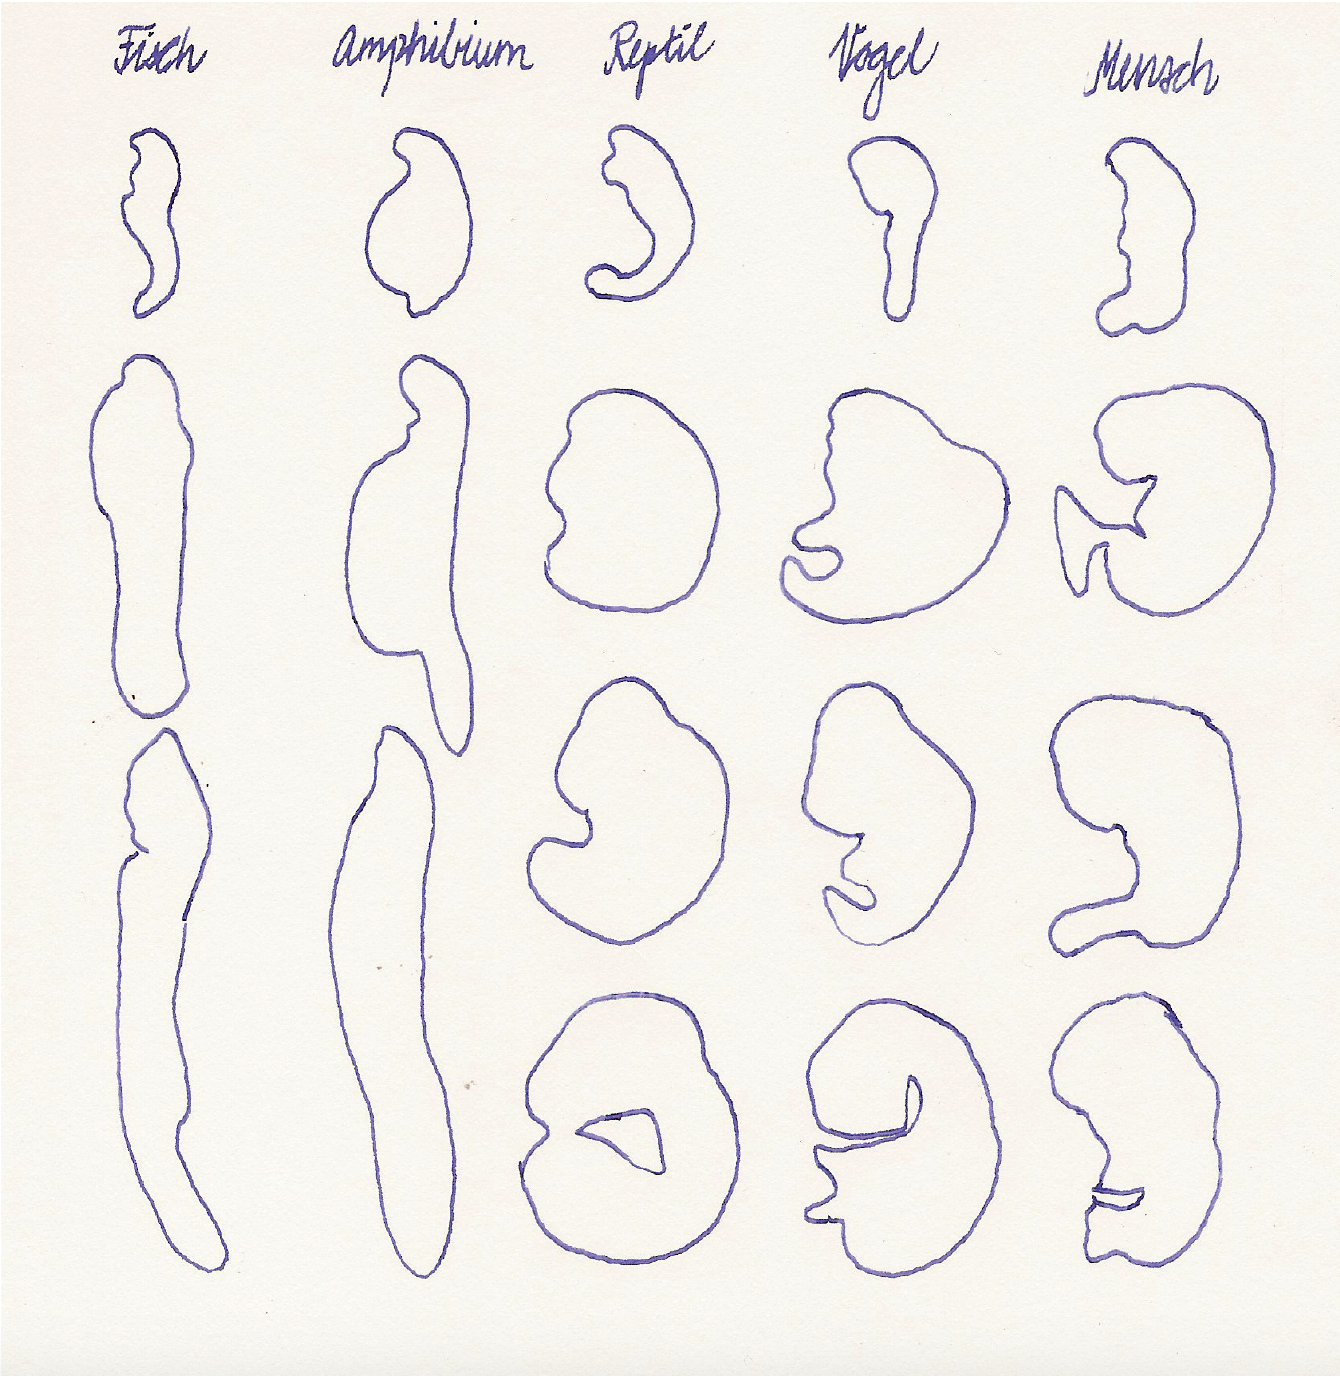 Fisch Amphibium Reptil Vogel Mensch